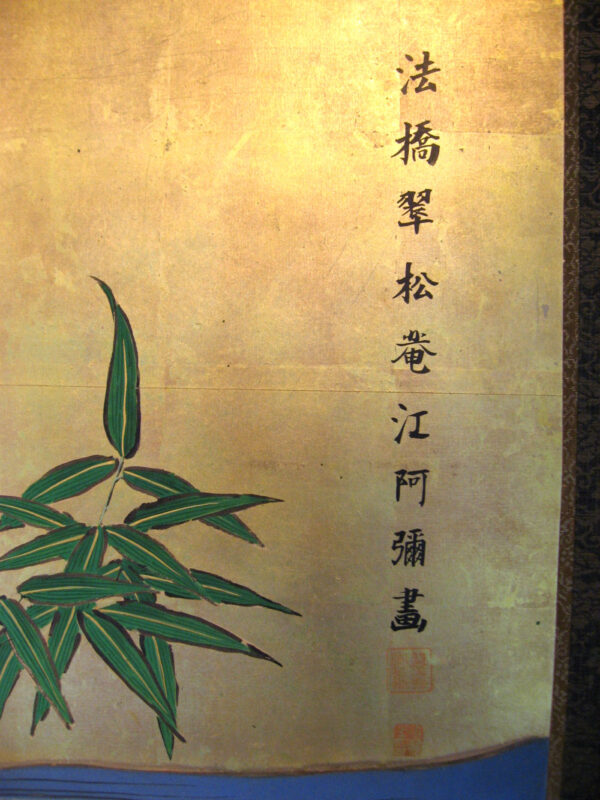 法橋翠松菴江阿彌畫